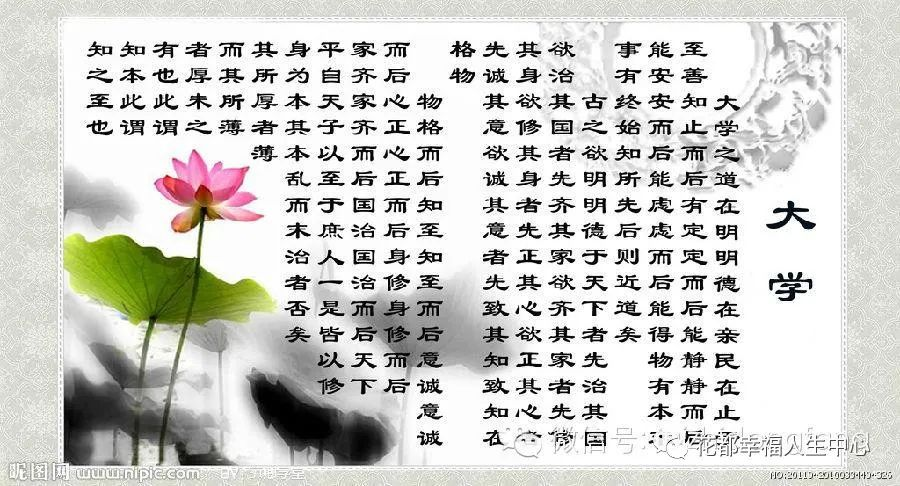 大学
大学之道在明明德在亲民在止于
至善知止而后有定定而后能静静而后
能安安而后能虑虑而后能得 物有本末
事有终始知所先后则近道矣
古之欲明明德于天下者先治其国
欲治其国者先齐其家欲齐其家者先修
其身欲修其身者先正其心欲正其心者
先诚其意欲诚其意者先致其知致知在
格物
物格而后知至知至而后意诚意诚
而后心正心正而后身修身修而后
家齐家齐而后国治国治而后天下
平自天子以至于庶人一是皆以修
身为本其本乱而末治者否矣
其所厚者薄
而其所薄
者厚未之
有也此谓
知本此谓
知之至也
微信号:
花都幸福人生中心
昵图网 www.nipic.com BY: